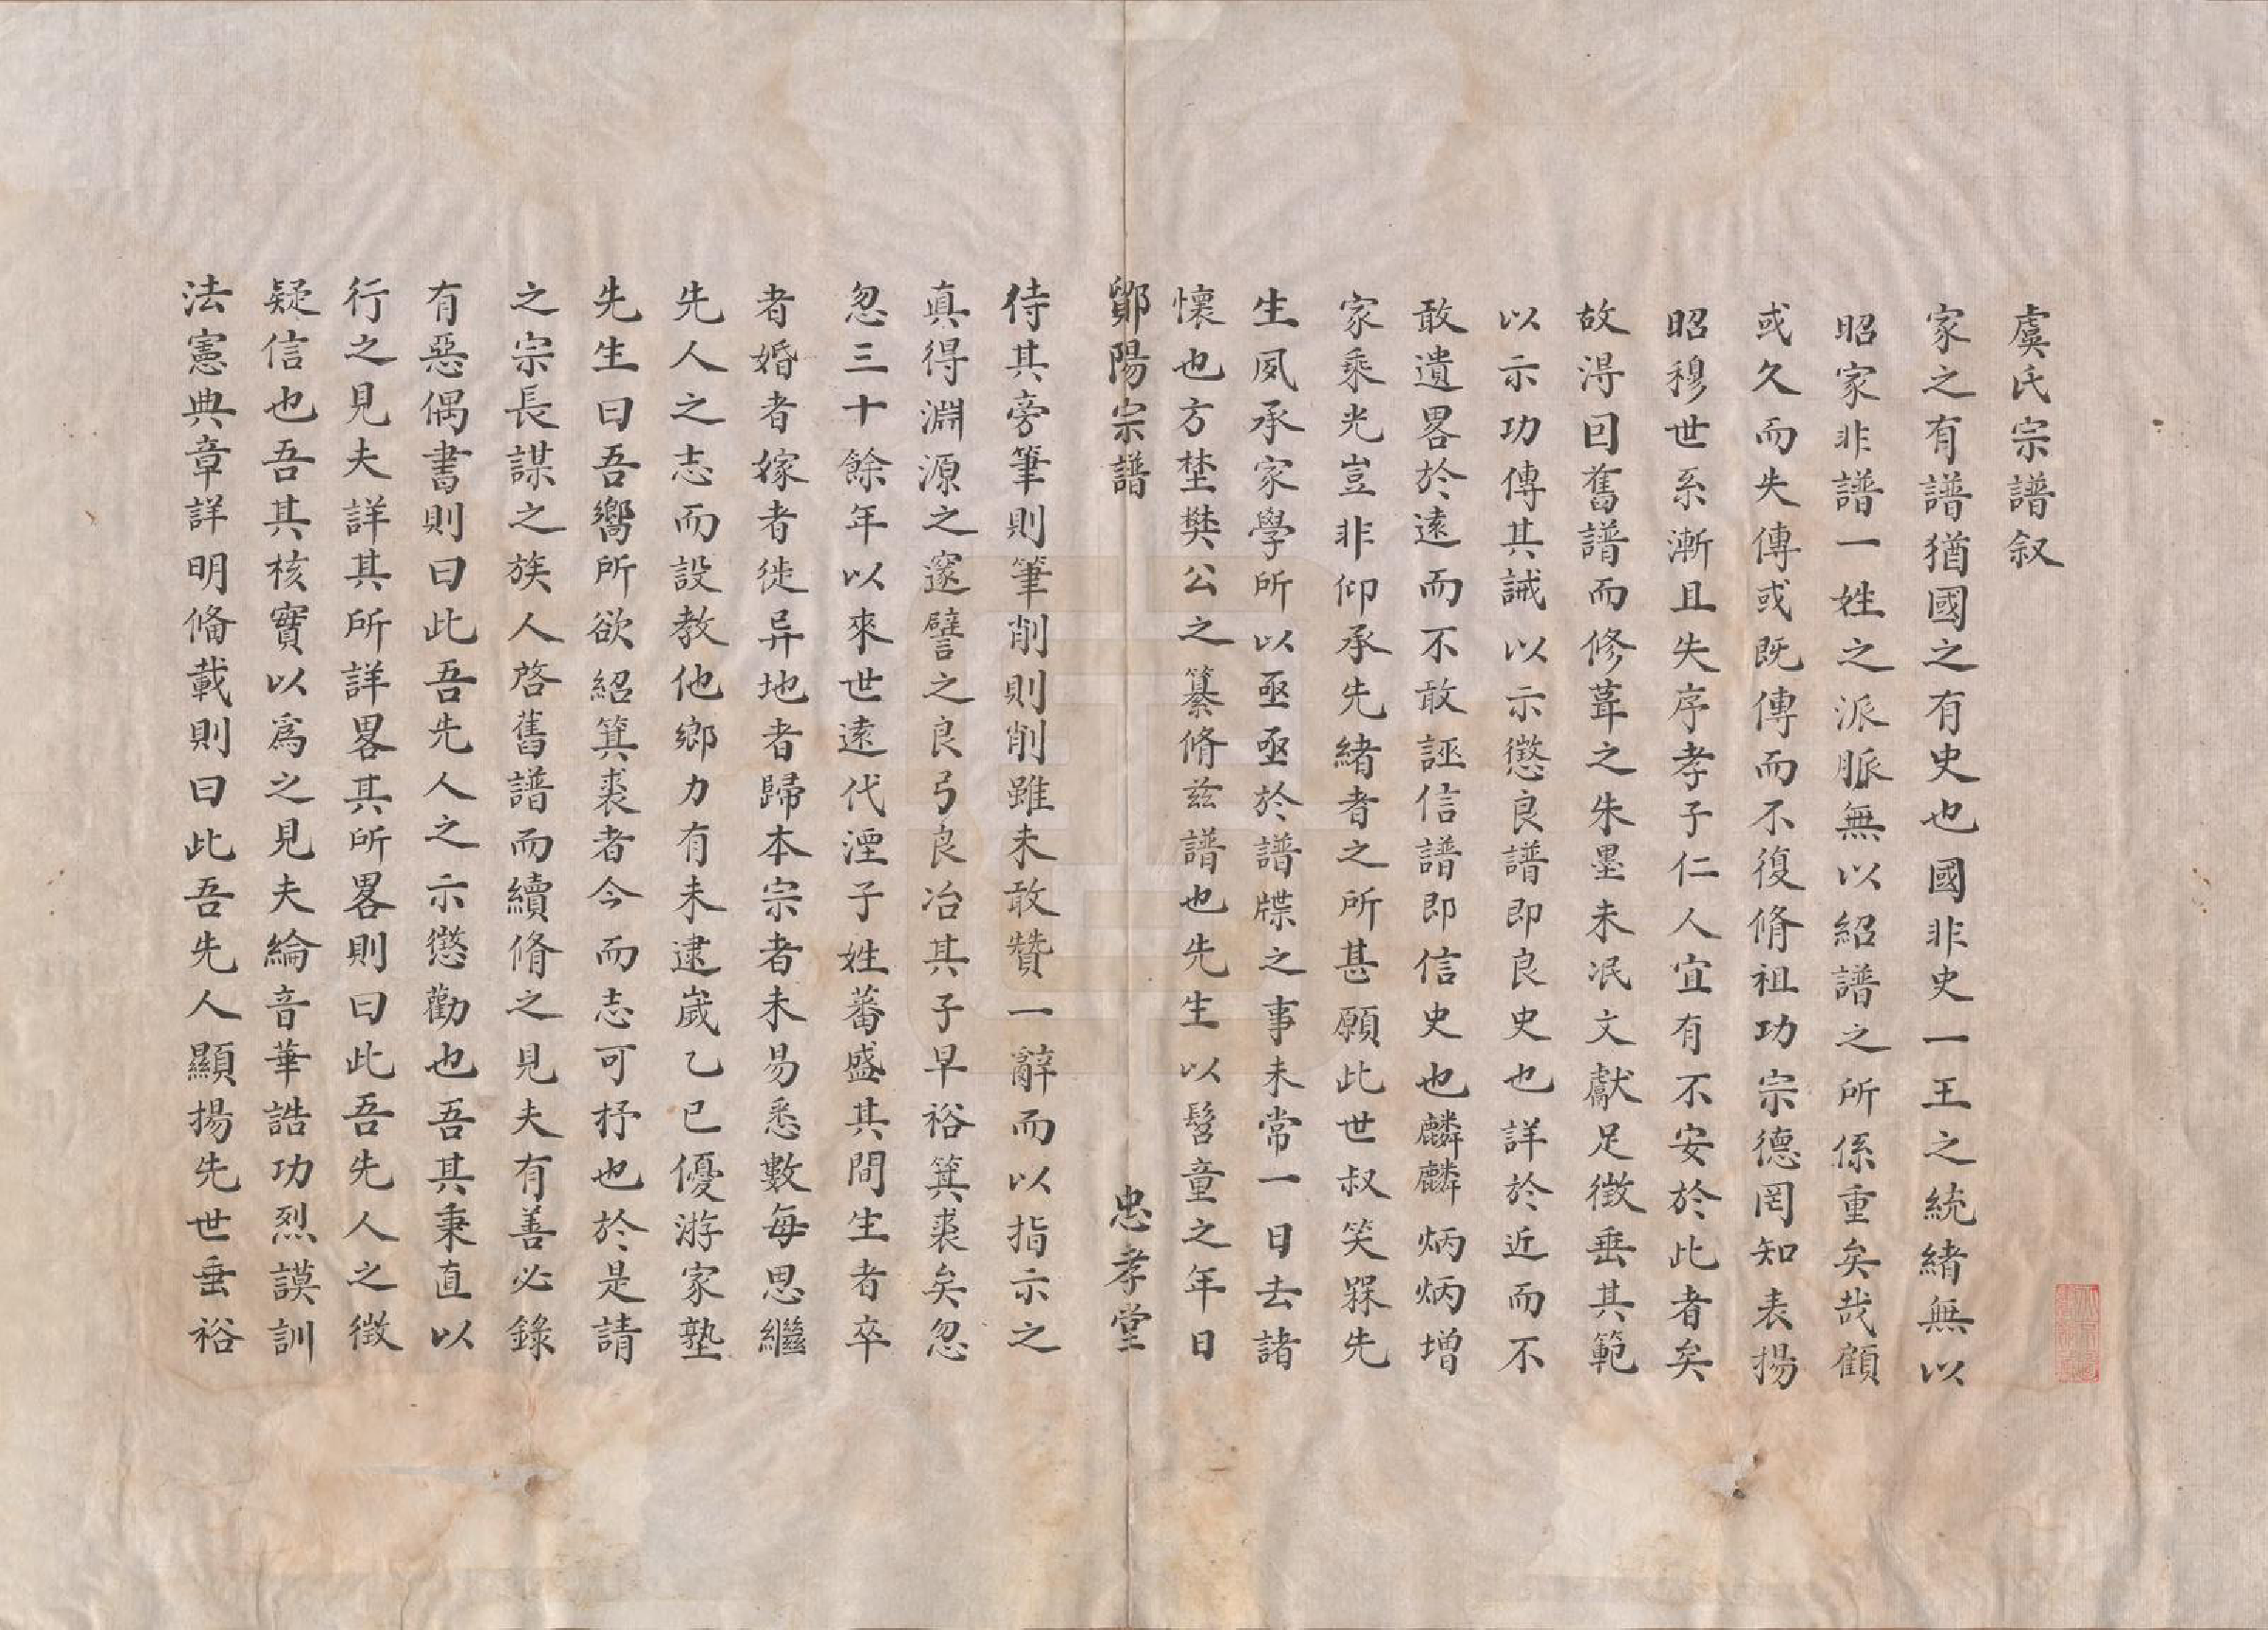 虞氏宗譜叙
家之有譜猶國之有史也國非史一王之統緒無以
昭家非譜一姓之派脈無以紹譜之所係重矣哉顧
或久而失傳或既傳而不復脩祖功宗德罔知表揚
昭穆世系漸且失序孝子仁人宜有不安於此者矣
故淂囙舊譜而修葺之朱墨未泯文獻足徵垂其範
以示功傳其誡以示懲良譜即良史也詳於近而不
敢遺畧於遠而不敢誣信譜即信史也麟麟炳炳增
家乘光豈非仰承先緒者之所甚願此世叔笑槑先
生夙承家學所以亟亟於譜牒之事未常一日去諸
懷也方埜樊公之纂脩兹譜也先生以髫童之年日
鄮陽宗譜　忠孝堂
侍其旁筆則筆削則削雖未敢贊一辭而以指示之
真得淵源之邃譬之良弓良冶其子早裕箕裘矣忽
忽三十餘年以來世遠代湮子姓蕃盛其間生者卒
者婚者嫁者徙异地者歸本宗者未易悉數每思繼
先人之志而設教他鄉力有未逮歲乙巳優游家塾
先生曰吾嚮所欲紹箕裘者今而志可抒也於是請
之宗長謀之族人啓舊譜而續脩之見夫有善必錄
有惡偶書則曰此吾先人之示懲勸也吾其秉直以
行之見夫詳其所詳畧其所畧則曰此吾先人之徵
疑信也吾其核實以爲之見夫綸音華誥功烈謨訓
法憲典章詳明備載則曰此吾先人顯揚先世垂裕